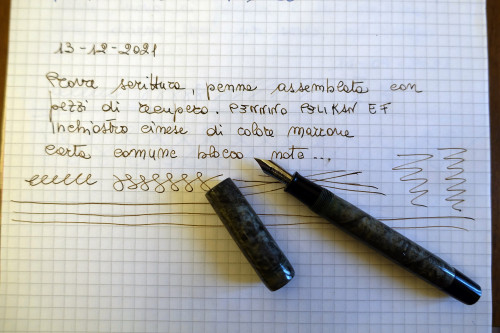 13-12-2021
Prova scrittura, penna assemblata con
pezzi di recupero. PENNINO PELIKAN EF
Inchiostro cinese di colore marrone
carta comune blocco note....